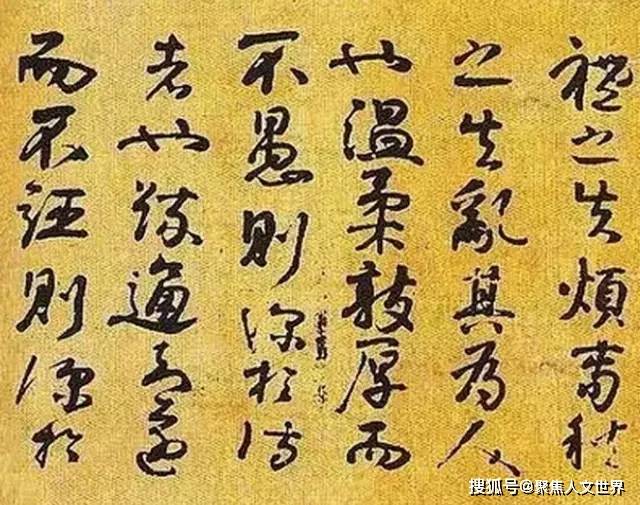 禮之失煩春秋
之失亂其為人
也溫柔敦厚而
不愚則深於詩
者也疎通知遠
而不誣則深於
搜狐号@聚焦人文世界